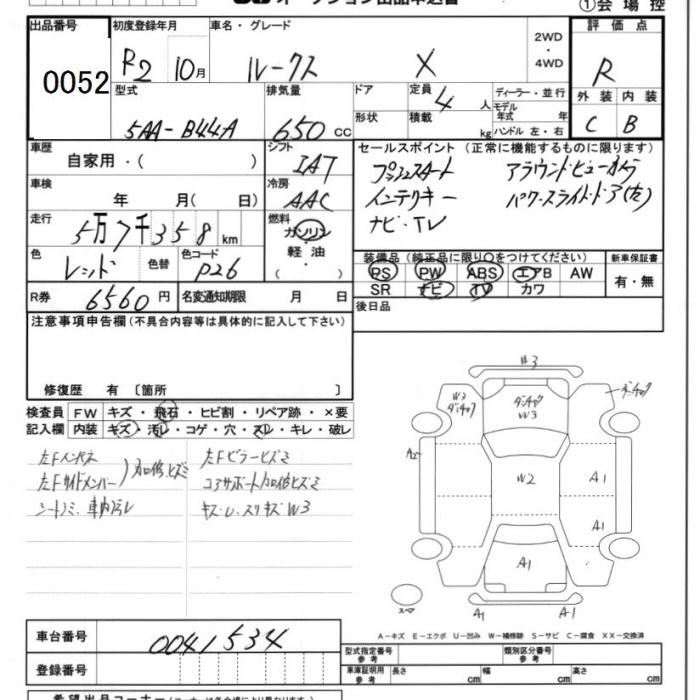 オークション出品申込書
①会場控
出品番号
0052
初度登録年月
R2 10月
車名・グレード
ルークス X
2WD
・
4WD
評価点
R
型式
5AA-B44A
排気量
650 CC
ドア
定員
4 人
ディーラー・並行
モデル
年式 年
形状
積載
kg
ハンドル 左・右
外装 内装
C B
車歴
自家用・( )
シフト
IAT
セールスポイント (正常に機能するものに限ります)
プッシュスタート アラウンドビューカメラ
インテリキー パワースライドドア(左)
ナビ・TV
車検
年 月( 日)
冷房
AAC
走行
5万7千358 km
燃料
ガソリン
・
軽油
( )
色
レッド
色替
色コード
P26
装備品 (純正品に限り○をつけてください)
PS PW ABS エアB AW
SR ナビ TV カワ
新車保証書
有・無
R券 6560 円
名変通知期限 月 日
後日品
注意事項申告欄(不具合内容等は具体的に記入して下さい)
修復歴 有 〔箇所 〕
検査員
記入欄
FW キズ・飛石・ヒビ割・リペア跡・×要
内装 キズ・汚レ・コゲ・穴・スレ・キレ・破レ
左Fインパネ
左Fサイドメンバー 加修、ヒズミ
シートシミ、車内汚レ
左Fピラーヒズミ
コアサポート加修ヒズミ
キズ・レ・スリキズ W3
W3
W3
ダ・チョック
ダ・チョック
W3
ダ・チョック
A2
W2
A1
A1
A1
A1
A1
スペア
A-キズ E-エクボ U-凹み W-補修跡 S-サビ C-腐食 XX-交換済
車台番号
0041534
登録番号
型式指定番号
参考
類別区分番号
参考
車庫証明用
参考
長さ cm
幅 cm
高さ cm
希望出品コーナー